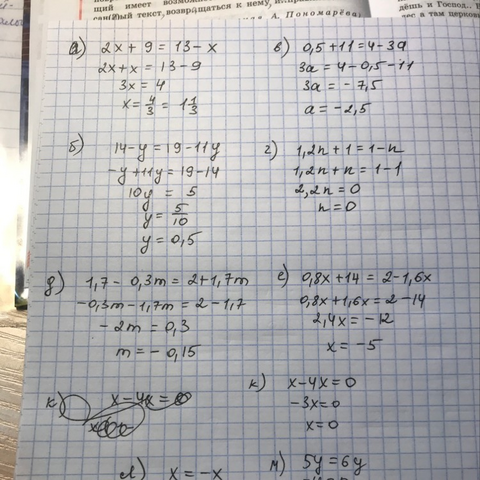 щий имеет возможно
сан(н)ый текст, возвращаться к нему, из
А. Пономарёва
дёшь и Господ..
дес а там церковн
а) 2x + 9 = 13 - x
2x + x = 13 - 9
3x = 4
x = 4/3 = 1 1/3
б) 14 - y = 19 - 11y
-y + 11y = 19 - 14
10y = 5
y = 5/10
y = 0,5
в) 0,5 + 11 = 4 - 3a
3a = 4 - 0,5 - 11
3a = -7,5
a = -2,5
г) 1,2n + 1 = 1 - n
1,2n + n = 1 - 1
2,2n = 0
n = 0
д) 1,7 - 0,3m = 2 + 1,7m
-0,3m - 1,7m = 2 - 1,7
-2m = 0,3
m = -0,15
е) 0,8x + 14 = 2 - 1,6x
0,8x + 1,6x = 2 - 14
2,4x = -12
x = -5
к) x = 4x = 0
к) x - 4x = 0
-3x = 0
x = 0
л) x = -x
м) 5y = 6y